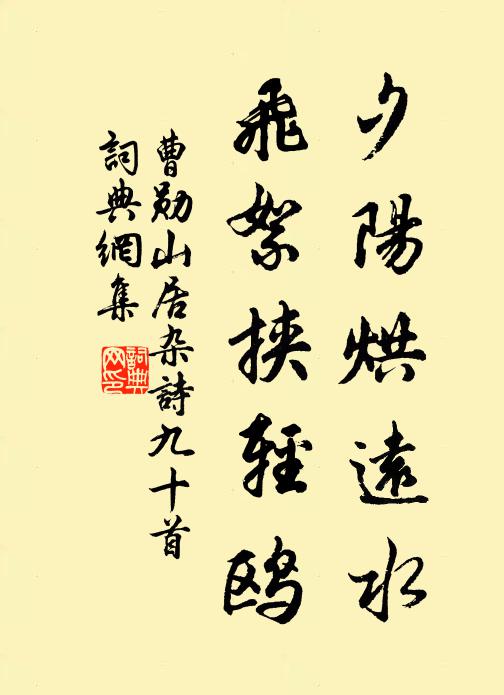 夕陽烘遠水
飛絮挟輕鸥
曹勋山居杂詩九十首
詞典網集
詞典网印